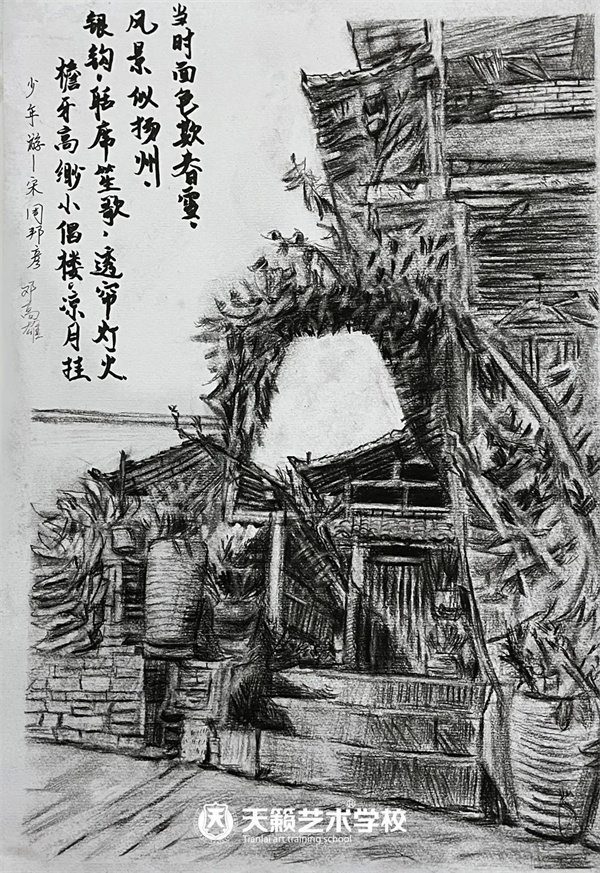 少年游—宋周邦彦 邓高雄
檐牙高缈小倡楼。凉月挂
银钩，聒席笙歌，透帘灯火
风景似扬州，
当时面色欺春雪，
天籁艺术学校
Tianlai art training school